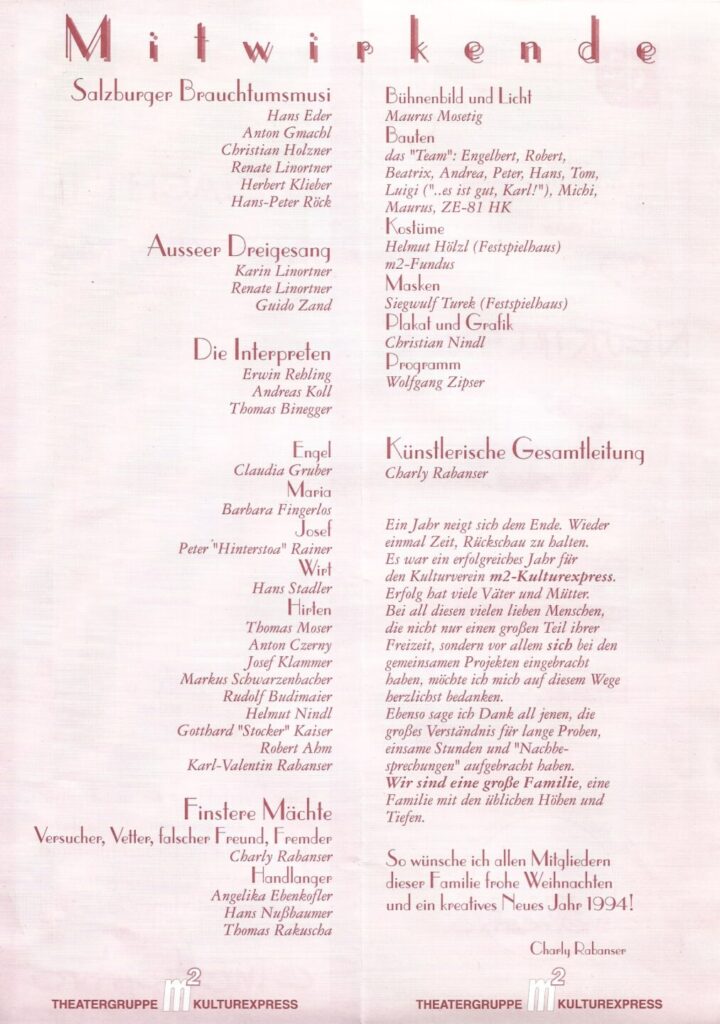 Mitwirkende
Salzburger Brauchtumsmusi
Hans Eder
Anton Gmachl
Christian Holzner
Renate Linortner
Herbert Klieber
Hans-Peter Röck
Ausseer Dreigesang
Karin Linortner
Renate Linortner
Guido Zand
Die Interpreten
Erwin Rehling
Andreas Koll
Thomas Binegger
Engel
Claudia Gruber
Maria
Barbara Fingerlos
Josef
Peter "Hinterstoa" Rainer
Wirt
Hans Stadler
Hirten
Thomas Moser
Anton Czerny
Josef Klammer
Markus Schwarzenbacher
Rudolf Budimaier
Helmut Nindl
Gotthard "Stocker" Kaiser
Robert Ahm
Karl-Valentin Rabanser
Finstere Mächte
Versucher, Vetter, falscher Freund, Fremder
Charly Rabanser
Handlanger
Angelika Ebenkofler
Hans Nußbaumer
Thomas Rakuscha
THEATERGRUPPE m2 KULTUREXPRESS
Bühnenbild und Licht
Maurus Mosetig
Bauten
das "Team": Engelbert, Robert,
Beatrix, Andrea, Peter, Hans, Tom,
Luigi ("..es ist gut, Karl!"), Michi,
Maurus, ZE-81 HK
Kostüme
Helmut Hölzl (Festspielhaus)
m2-Fundus
Masken
Siegwulf Turek (Festspielhaus)
Plakat und Grafik
Christian Nindl
Programm
Wolfgang Zipser
Künstlerische Gesamtleitung
Charly Rabanser
Ein Jahr neigt sich dem Ende. Wieder
einmal Zeit, Rückschau zu halten.
Es war ein erfolgreiches Jahr für
den Kulturverein m2-Kulturexpress.
Erfolg hat viele Väter und Mütter.
Bei all diesen vielen lieben Menschen,
die nicht nur einen großen Teil ihrer
Freizeit, sondern vor allem sich bei den
gemeinsamen Projekten eingebracht
haben, möchte ich mich auf diesem Wege
herzlichst bedanken.
Ebenso sage ich Dank all jenen, die
großes Verständnis für lange Proben,
einsame Stunden und "Nachbe-
sprechungen" aufgebracht haben.
Wir sind eine große Familie, eine
Familie mit den üblichen Höhen und
Tiefen.
So wünsche ich allen Mitgliedern
dieser Familie frohe Weihnachten
und ein kreatives Neues Jahr 1994!
Charly Rabanser
THEATERGRUPPE m2 KULTUREXPRESS